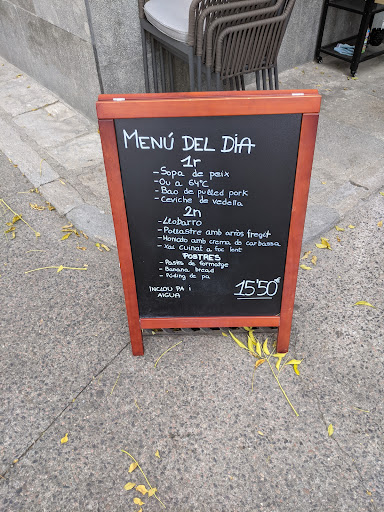 MENÚ DEL DIA
1r
- Sopa de peix
- Ou a 64°C
- Bao de pulled pork
- Ceviche de vedella
2n
- Llobarro
- Pollastre amb arròs fregit
- Moniato amb crema de carbassa
- Xai cuinat a foc lent
POSTRES
- Pastís de formatge
- Banana bread
- Púding de pa
INCLOU PA I
AIGUA
15'50€